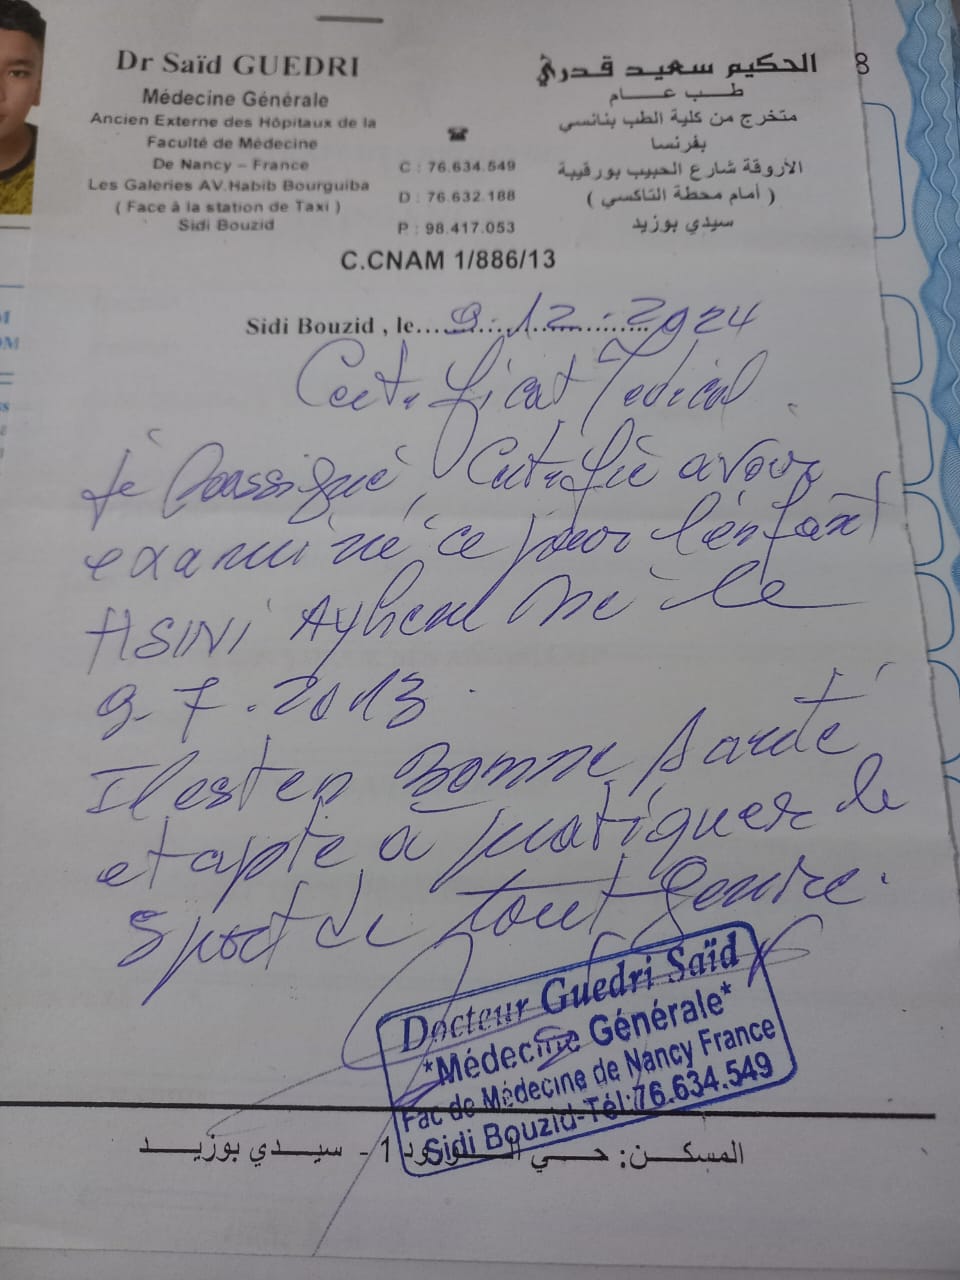 Dr Saïd GUEDRI
Médecine Générale
Ancien Externe des Hôpitaux de la
Faculté de Médecine
De Nancy – France
Les Galeries AV.Habib Bourguiba
( Face à la station de Taxi )
Sidi Bouzid
☎
C : 76.634.549
D : 76.632.188
P : 98.417.053
الحكيم سعيد قدري
طب عام
متخرج من كلية الطب بنانسي
بفرنسا
الأروقة شارع الحبيب بورقيبة
( أمام محطة التاكسي )
سيدي بوزيد
8
C.CNAM 1/886/13
Sidi Bouzid , le 9.12.2024
Certificat Médical
Je soussigné, Certifie avoir
examiné ce jour l'enfant
HSINI Ayhem Né le
9-7.2013
Il est en Bonne santé
et apte à pratiquer le
sport de tout genre.
Docteur Guedri Saïd
*Médecine Générale*
Fac de Médecine de Nancy France
Sidi Bouzid-Tél:76.634.549
المسكن: حي 1 - سيدي بوزيد